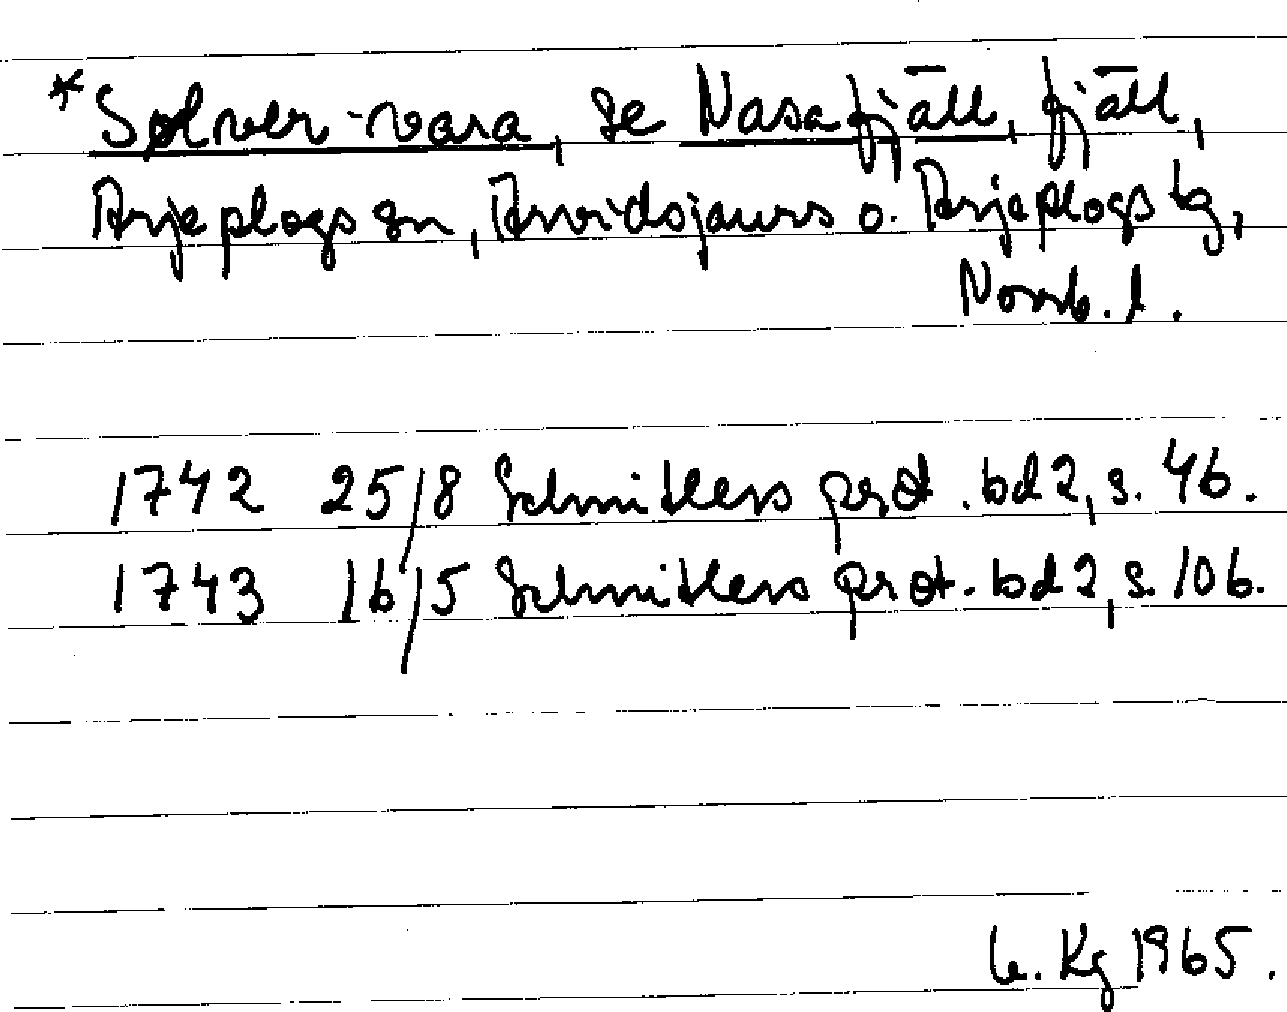 *Sølver-vara, se Nasafjäll, fjäll,
Arjeplogs sn, Arvidsjaurs o. Arjeplogs tg,
Norrb. l.
1742 25/8 Schnitlers prot. bd 2, s. 46.
1743 16/5 Schnitlers prot. bd 2, s. 106.
Kg 1965.